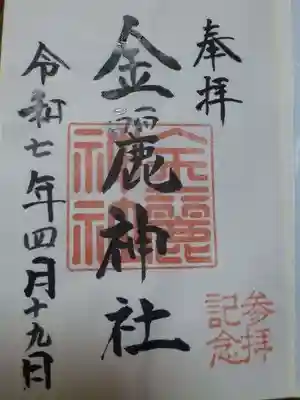 奉拝
参拝
記念
金麗神社
金麗
神社
令和七年四月十九日